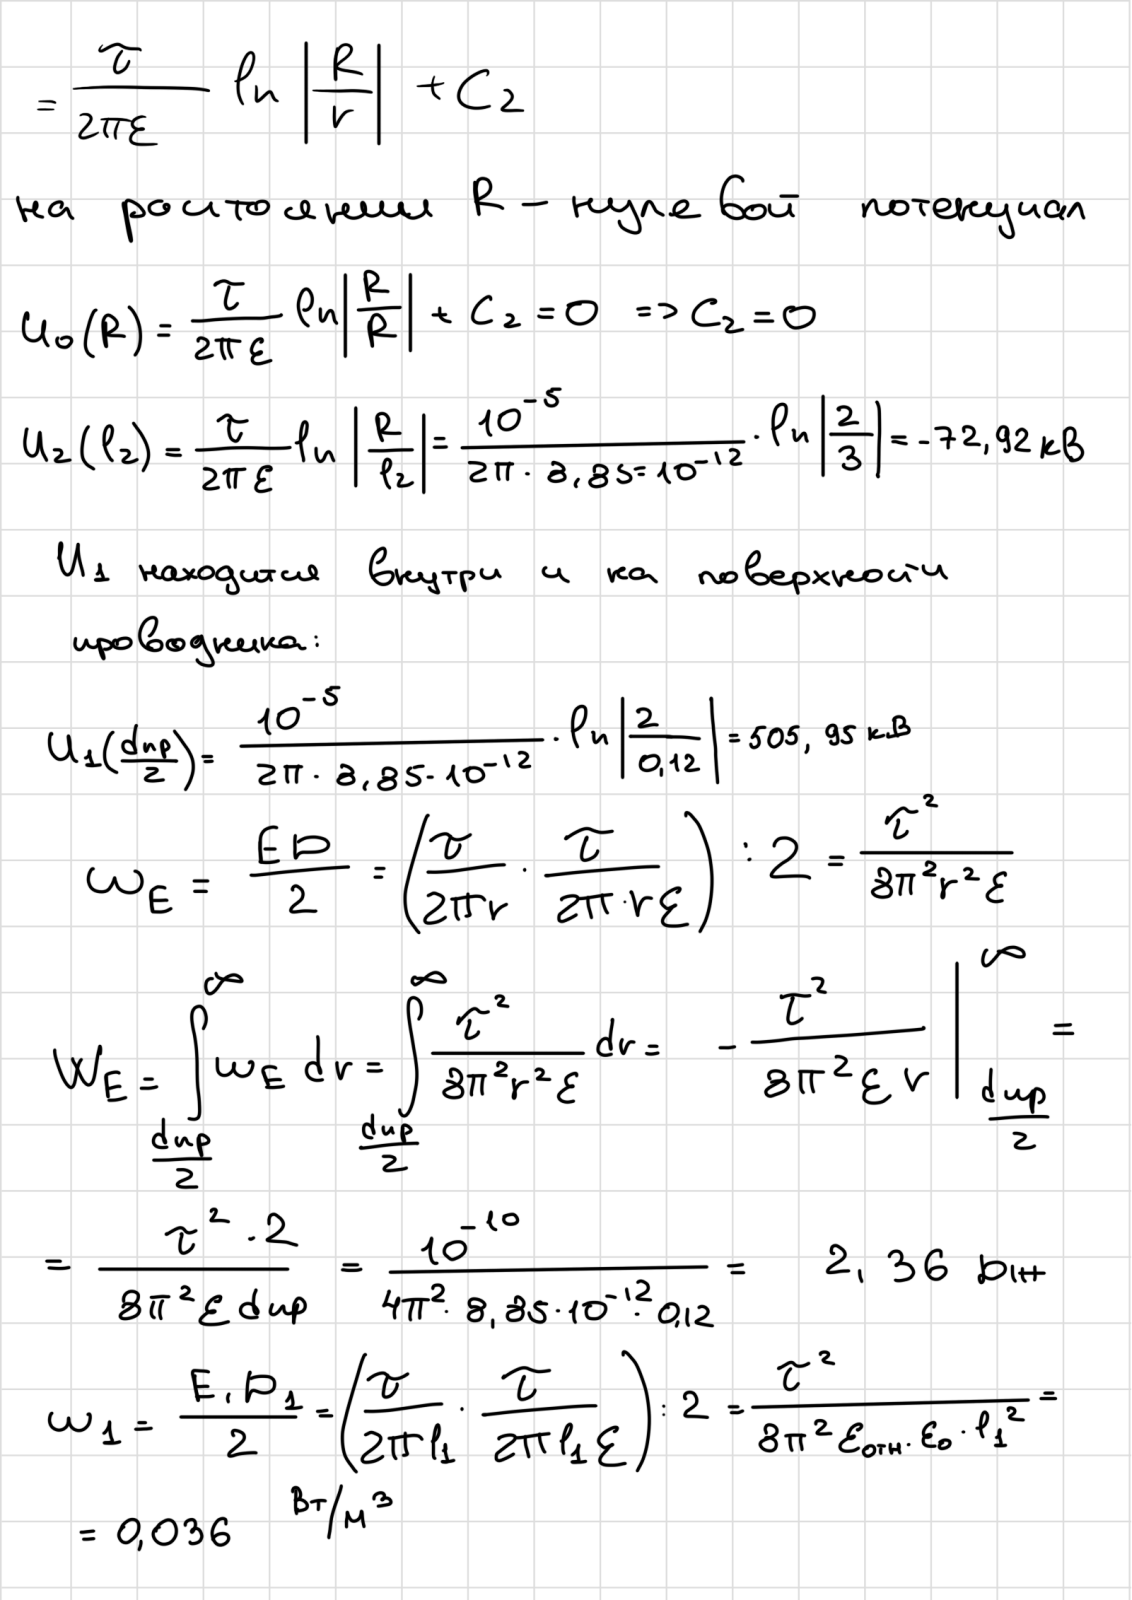 = τ/(2πε) ln |R/r| + C₂
на расстоянии R – нулевой потенциал
U₀(R) = τ/(2πε) ln|R/R| + C₂ = 0 => C₂ = 0
U₂(l₂) = τ/(2πε) ln |R/l₂| = 10⁻⁵/(2π · 8,85=10⁻¹²) · ln |2/3| = -72,92 кВ
U₁ находится внутри и на поверхности
проводника:
U₁(dпр/2) = 10⁻⁵/(2π · 8,85·10⁻¹²) · ln |2/0,12| = 505,95 кВ
ωE = ED/2 = (τ/(2πr) · τ/(2π·rε)) : 2 = τ²/(8π²r²ε)
WE = ∫_{dпр/2}^{∞} ωE dr = ∫_{dпр/2}^{∞} τ²/(8π²r²ε) dr = - τ²/(8π²εr) |_{dпр/2}^{∞} =
= τ²·2/(8π²εdпр) = 10⁻¹⁰/(4π²·8,85·10⁻¹²·0,12) = 2,36 Дж
ω₁ = E₁D₁/2 = (τ/(2πl₁) · τ/(2πl₁ε)) : 2 = τ²/(8π²εотн·ε₀·l₁²) =
= 0,036 Вт/м³